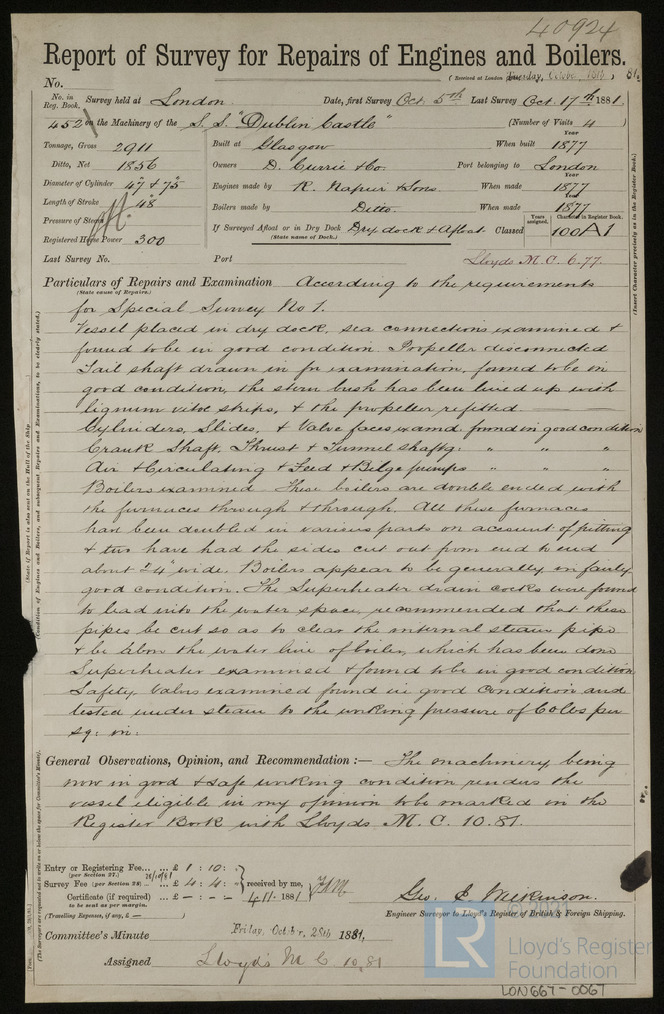 40924
Report of Survey for Repairs of Engines and Boilers.
No.
(Received at London Tuesday, October, 18th, 81.
No. in Reg. Book. Survey held at London. Date, first Survey Oct. 5th Last Survey Oct. 17th 1881.
452 on the Machinery of the S.S. "Dublin Castle" (Number of Visits 4)
Tonnage, Gross 2911 Built at Glasgow When built Year 1877
Ditto, Net 1856 Owners D. Currie & Co. Port belonging to London
Diameter of Cylinder 47" & 75" Engines made by R. Napier & Sons. When made Year 1877
Length of Stroke 48" Boilers made by Ditto. When made Year 1877
Pressure of Steam
Registered Horse Power 300 If Surveyed Afloat or in Dry Dock Dry dock & Afloat Classed Years assigned. Character in Register Book. 100A1
(State name of Dock.)
Last Survey No. Port Lloyds M.C. 6.77.
Particulars of Repairs and Examination According to the requirements
(State cause of Repairs.)
for Special Survey No 1.
Vessel placed in dry dock, sea connections examined &
found to be in good condition. Propeller disconnected
Tail shaft drawn in for examination, found to be in
good condition, the stern bush has been lined up with
lignum vitae strips, & the propeller refitted.
Cylinders, Slides, & Valve faces examd. found in good condition
Crank Shaft, Thrust & Tunnel shaftg: " " "
Air & Circulating & Feed & Bilge pumps " " "
Boilers examined These boilers are double ended with
the furnaces through & through. All these furnaces
had been doubled in various parts on account of pitting
& two have had the sides cut out from end to end
about 24" wide. Boilers appear to be generally in fairly
good condition. The Superheater drain cocks were found
to lead into the water space, recommended that these
pipes be cut so as to clear the internal steam pipe
& be above the water line of boiler, which has been done
Superheater examined & found to be in good condition
Safety Valves examined found in good condition and
tested under steam to the working pressure of 60 lbs per
sq: in:
General Observations, Opinion, and Recommendation :— The machinery being
now in good & safe working condition renders the
vessel eligible in my opinion to be marked in the
Register Book with Lloyds M.C. 10.81.
Entry or Registering Fee... £ 1 : 10 :
(per Section 27.)
Survey Fee (per Section 28) ... £ 4 : 4 : received by me,
Certificate (if required) ... £ — : - : - 4/11 1881
to be sent as per margin.
(Travelling Expenses, if any, £ — )
Geo. E. Wilkinson.
Engineer Surveyor to Lloyd's Register of British & Foreign Shipping.
Committee's Minute Friday, October, 28th 1881,
Assigned Lloyd's M C 10.81
(Insert Character precisely as in the Register Book.)
(State if Report is also sent on the Hull of the Ship.
(Condition of Engines and Boilers, and subsequent Repairs and Examinations, to be clearly stated.)
(The Surveyors are requested not to write on or below the space for Committee's Minute).
LR
© 2021
Lloyd's Register
Foundation
LON667-0067